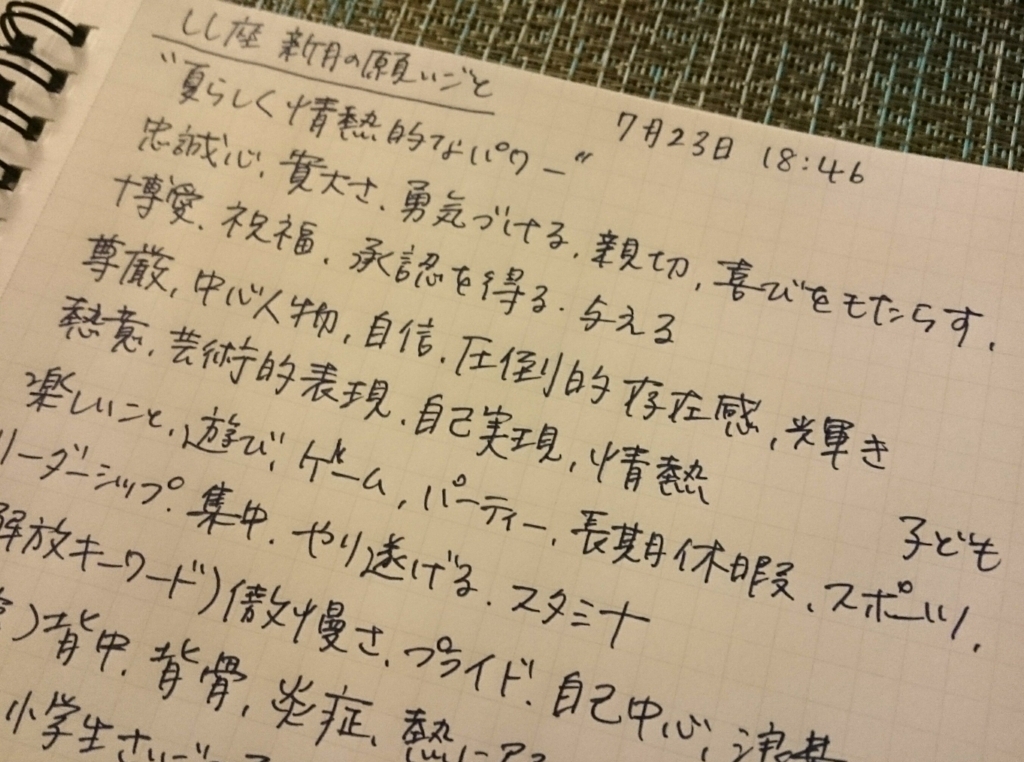 しし座 新月の願いごと
7月23日 18:46
"夏らしく情熱的なパワー"
忠誠心、寛大さ、勇気づける、親切、喜びをもたらす、
博愛、祝福、承認を得る、与える
尊厳、中心人物、自信、圧倒的存在感、光輝き
熱意、芸術的表現、自己実現、情熱
子ども
楽しいこと、遊び、ゲーム、パーティー、長期休暇、スポーツ、
リーダーシップ、集中、やり遂げる、スタミナ
解放キーワード)傲慢さ、プライド、自己中心、
)背中、背骨、炎症、熱による
小学生